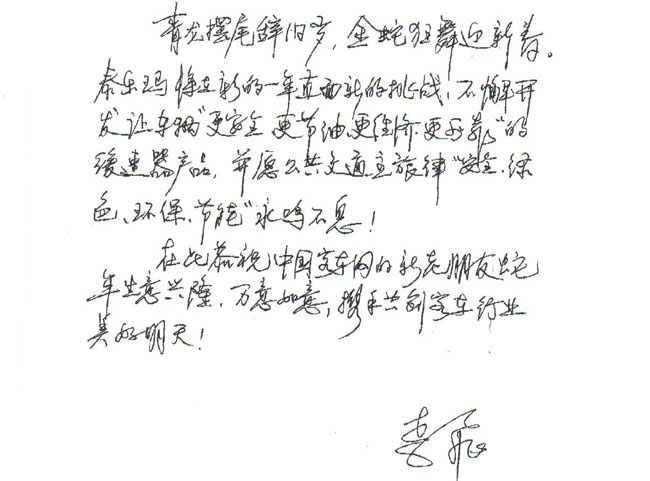 青龙摆尾辞旧岁，金蛇狂舞迎新春。
泰乐玛将在新的一年直面新的挑战，不懈开
发让车辆“更安全 更节油 更经济 更可靠”的
缓速器产品，并愿公共交通主旋律“安全、绿
色、环保、节能”永鸣不息！
在此恭祝中国客车网的新老朋友蛇
年生意兴隆，万事如意，携手共创客车行业
美好明天！
李飞